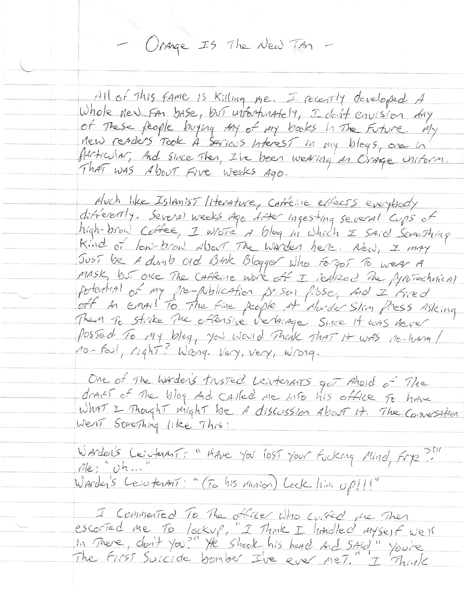 - Orange Is The New Tan -
All of this fame is killing me. I recently developed a
whole new fan base, but unfortunately, I don't envision any
of these people buying any of my books in the future. My
new readers took a serious interest in my blogs, one in
particular, and since then, I've been wearing an orange uniform.
That was about five weeks ago.
Much like Islamist literature, caffeine effects everybody
differently. Several weeks ago after ingesting several cups of
high-brow coffee, I wrote a blog in which I said something
kind of low-brow about the warden here. Now, I may
just be a dumb old Bank Blogger who forgot to wear a
mask, but once the caffeine wore off I realized the pyrotechnical
potential of my pre-publication prose, and I fired
off an email to the fine people at Murder Slim Press asking
them to strike the offensive verbiage. Since it was never
posted to my blog, you would think that it was no-harm/
no-foul, right? Wrong. Very, very, wrong.
One of the Warden's trusted Leiutenants got ahold of the
draft of the blog and called me into his office to have
what I thought might be a discussion about it. The conversation
went something like this:
Warden's Leiutenant: "Have you lost your fucking mind, Frye?!"
Me: "Uh..."
Warden's Leiutenant: "(To his minion) Lock him up!!!"
I commented to the officer who cuffed me then
escorted me to lockup, "I think I handled myself well
in there, don't you?" He shook his head and said, "You're
the first suicide bomber I've ever met." I think